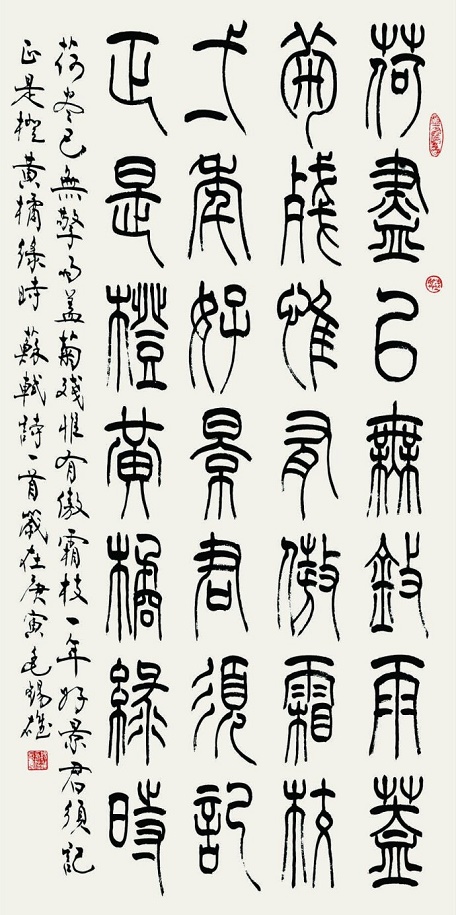 荷盡已無擎雨蓋
菊殘惟有傲霜枝
弌年好景君須記
正是橙黃橘綠時
荷盡已無擎雨蓋菊殘惟有傲霜枝一年好景君須記
正是橙黃橘綠時 蘇軾詩一首歲在庚寅毛錫